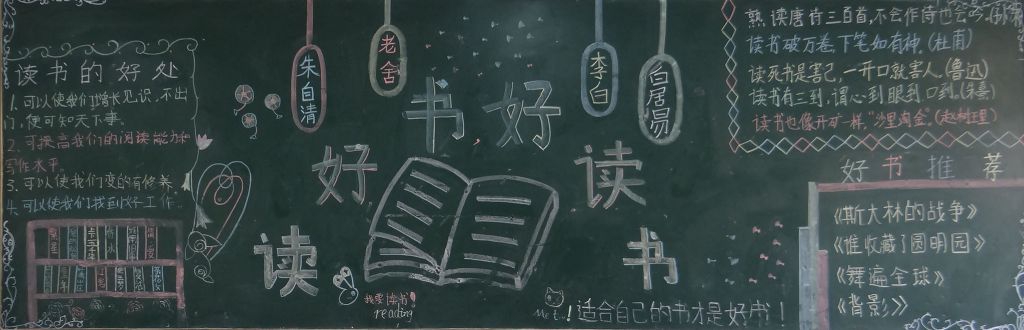 读书的好处
1.可以使我们增长见识,不出
门,便可知天下事.
2.可提高我们的阅读能力和
写作水平.
3.可以使我们变的有修养.
4.可以使我们找到好工作.
朱自清
老舍
李白
白居易
读好书好读书
我要读书
reading
Me too!
适合自己的书才是好书!
熟读唐诗三百首,不会作诗也会吟.
读书破万卷,下笔如有神.(杜甫)
读死书是害己,一开口就害人.(鲁迅)
读书有三到,谓心到眼到口到.(朱熹)
读书也像开矿一样,"沙里淘金".(赵树理)
好书推荐
《斯大林的战争》
《谁收藏了圆明园》
《舞遍全球》
《背影》